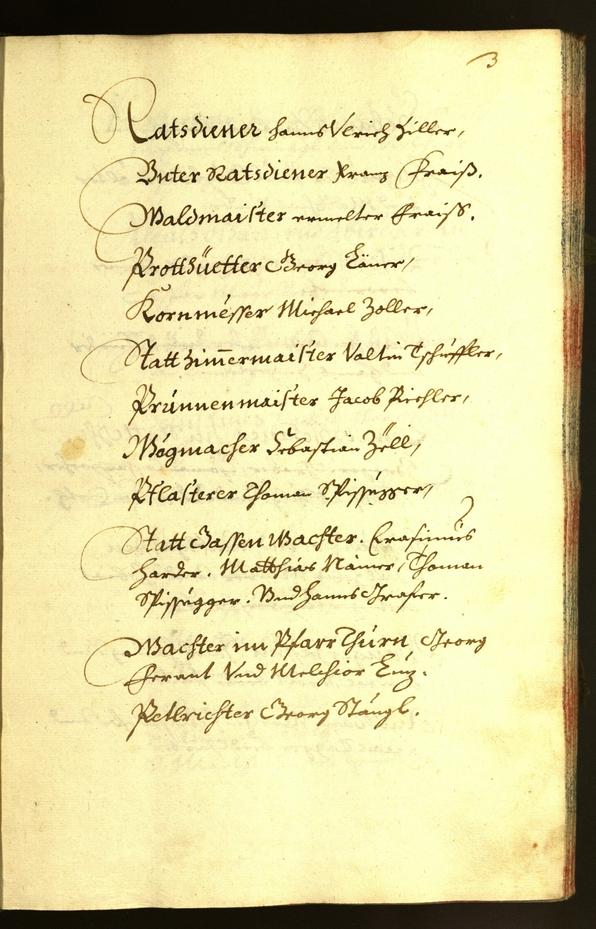 3
Ratsdiener Hanns Ulrich Hiller,
Unter Ratsdiener Franz Fraiß.
Waldmaister ermelter Fraiss.
Protthüetter Georg
Kornmesser Michael Zoller,
Statt Zim̄ermaister Valtin Tschuffler,
Prunnenmaister Jacob Pichler,
Wögmacher Sebastian Zöll,
Pflasterer Thoman Spissegger,
Statt Gassen Wachter. Erasimus
Harder. Matthias Thoman
Spissegger. Vnd Hanns Grafer.
Wachter im Pfarr Thurn, Georg
Vnd Melchior
Petlrichter Georg Stängl.